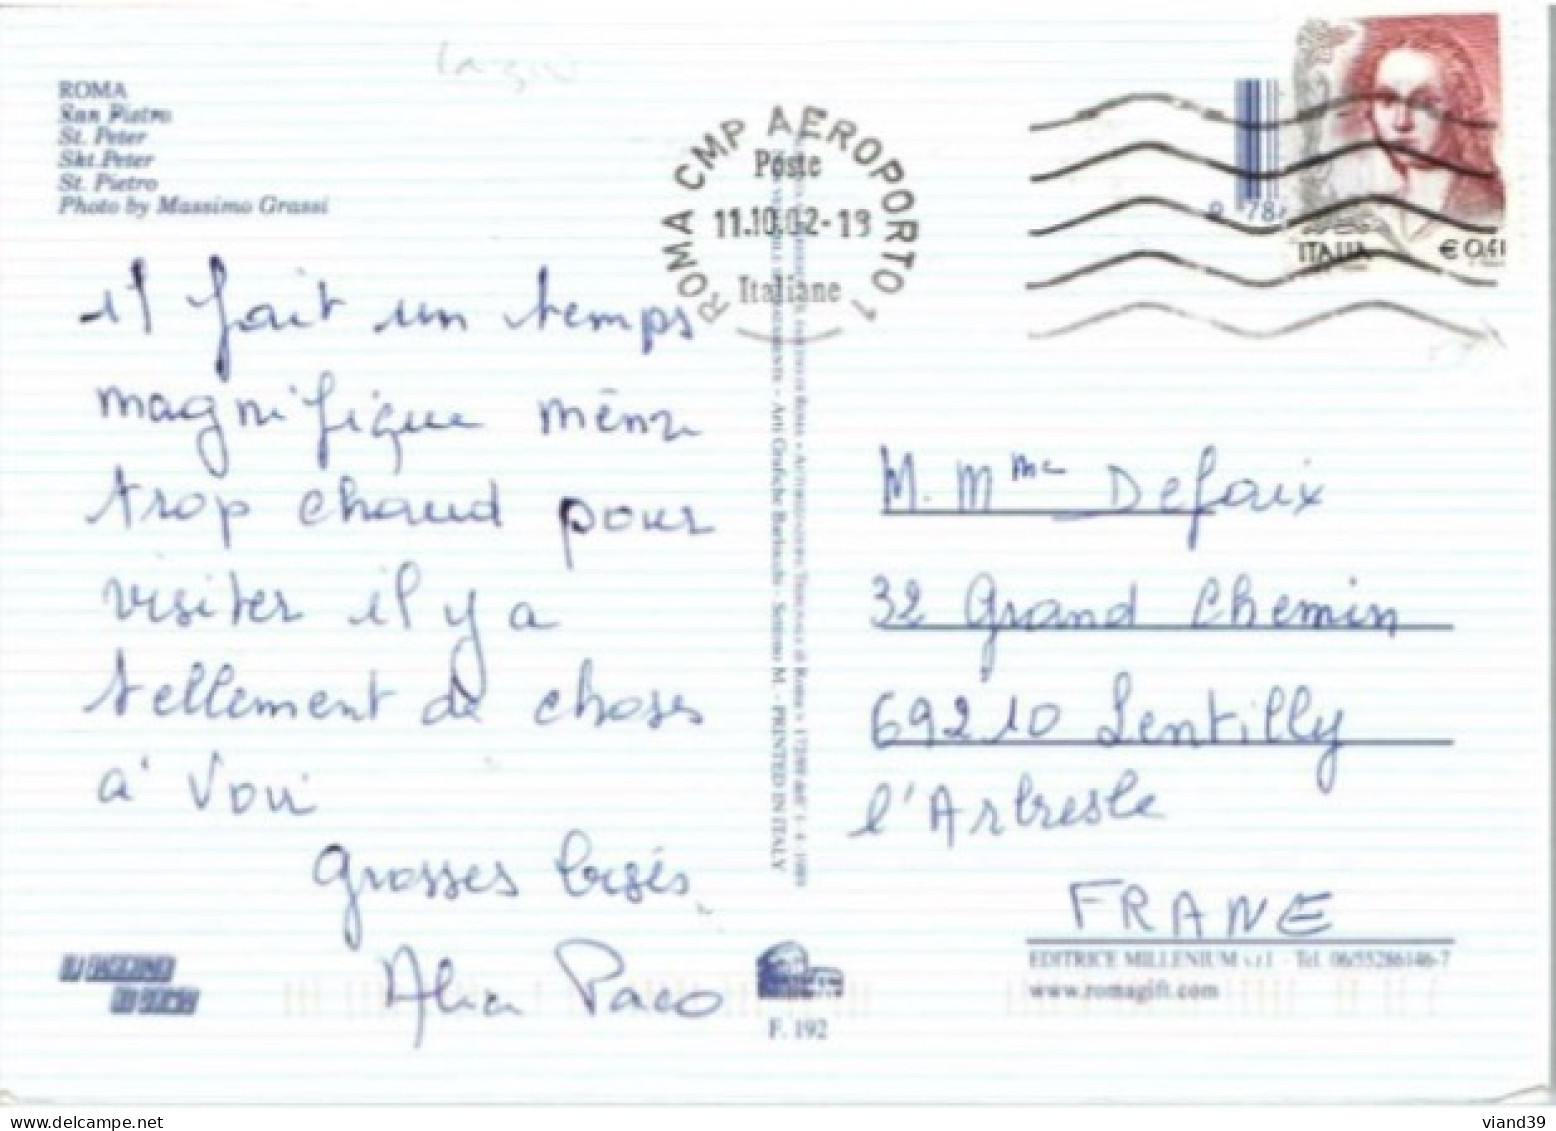 Lazio
ROMA
San Pietro
St. Peter
Skt. Peter
St. Pietro
Photo by Massimo Grassi
ROMA CMP AEROPORTO 1
Poste
11.10.02-19
Italiane
9 788
ITALIA
€ 0,41
il fait un temps
magnifique même
trop chaud pour
visiter il y a
tellement de choses
a' voir
Grosses bisés
Alice Paco
Arti Grafiche Barbieri - Settimo M. - PRINTED IN ITALY
M. Mme Defaix
32 Grand Chemin
69210 Lentilly
l'Arbresle
FRANE
EDITRICE MILLENIUM s.r.l - Tel. 06/55286146-7
www.romagift.com
F. 192
viand39